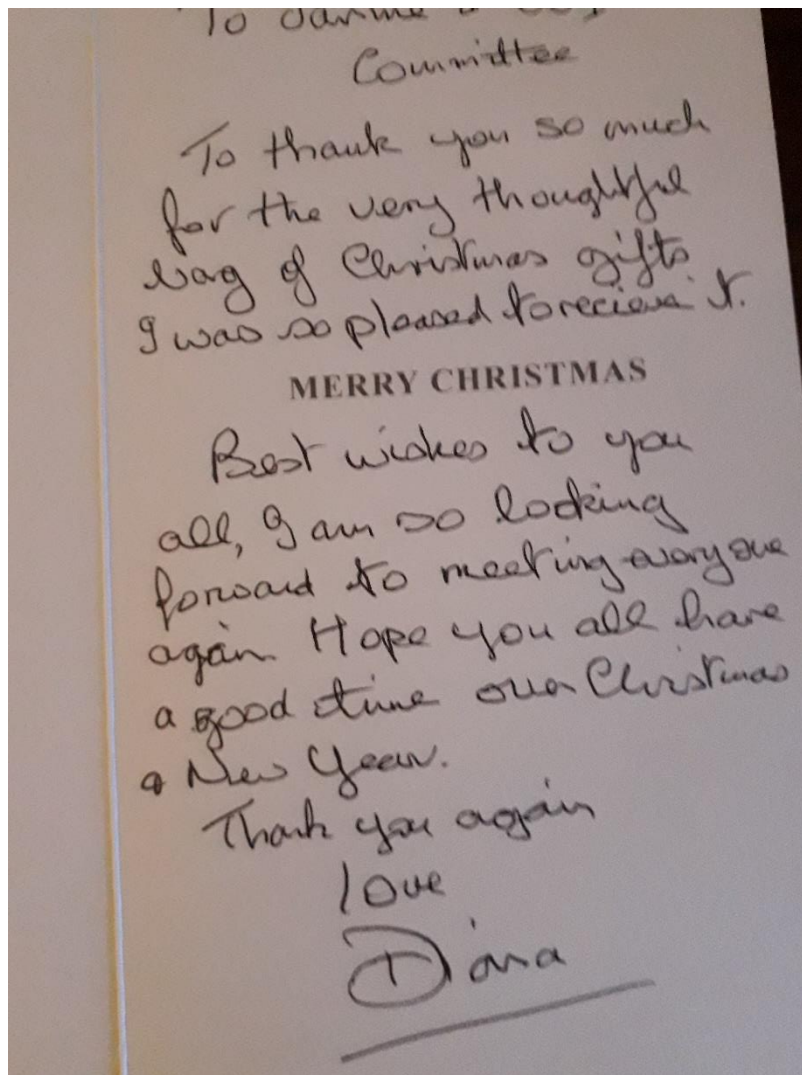 To
Committee
To thank you so much
for the very thoughtful
bag of Christmas gifts
I was so pleased to recieve it.
MERRY CHRISTMAS
Best wishes to you
all, I am so looking
forward to meeting everyone
again Hope you all have
a good time over Christmas
& New Year.
Thank you again
love
Diana